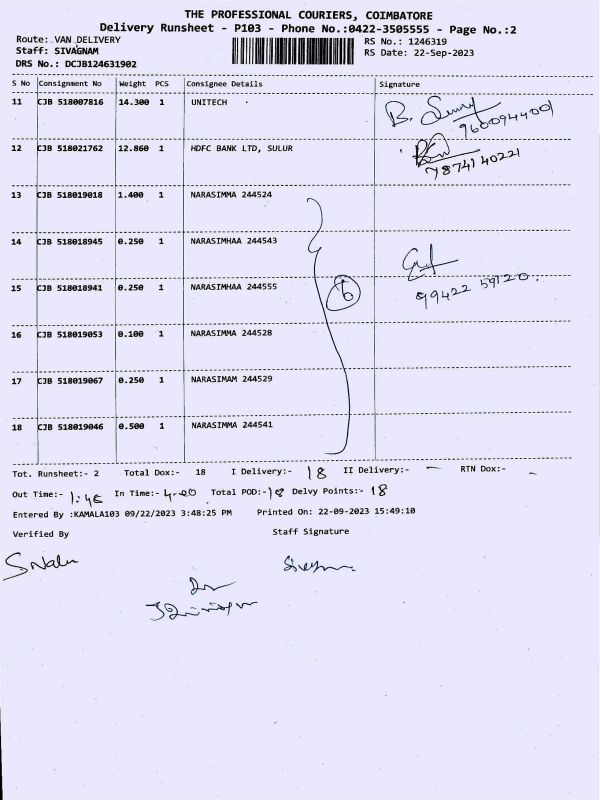 THE PROFESSIONAL COURIERS, COIMBATORE
Delivery Runsheet - P103 - Phone No.:0422-3505555 - Page No.:2
Route: VAN DELIVERY RS No.: 1246319
Staff: SIVAGNAM RS Date: 22-Sep-2023
DRS No.: DCJB124631902
S No Consignment No Weight PCS Consignee Details Signature
11 CJB 518007816 14.300 1 UNITECH
9600944001
12 CJB 518021762 12.860 1 HDFC BANK LTD, SULUR
7874140221
13 CJB 518019018 1.400 1 NARASIMMA 244524
14 CJB 518018945 0.250 1 NARASIMHAA 244543
15 CJB 518018941 0.250 1 NARASIMHAA 244555 6 99422 59120.
16 CJB 518019053 0.100 1 NARASIMMA 244528
17 CJB 518019067 0.250 1 NARASIMAM 244529
18 CJB 518019046 0.500 1 NARASIMMA 244541
Tot. Runsheet:- 2 Total Dox:- 18 I Delivery:- 18 II Delivery:- - RTN Dox:- -
Out Time:- 1:45 In Time:- 4-00 Total POD:- 18 Delvy Points:- 18
Entered By :KAMALA103 09/22/2023 3:48:25 PM Printed On: 22-09-2023 15:49:10
Verified By Staff Signature